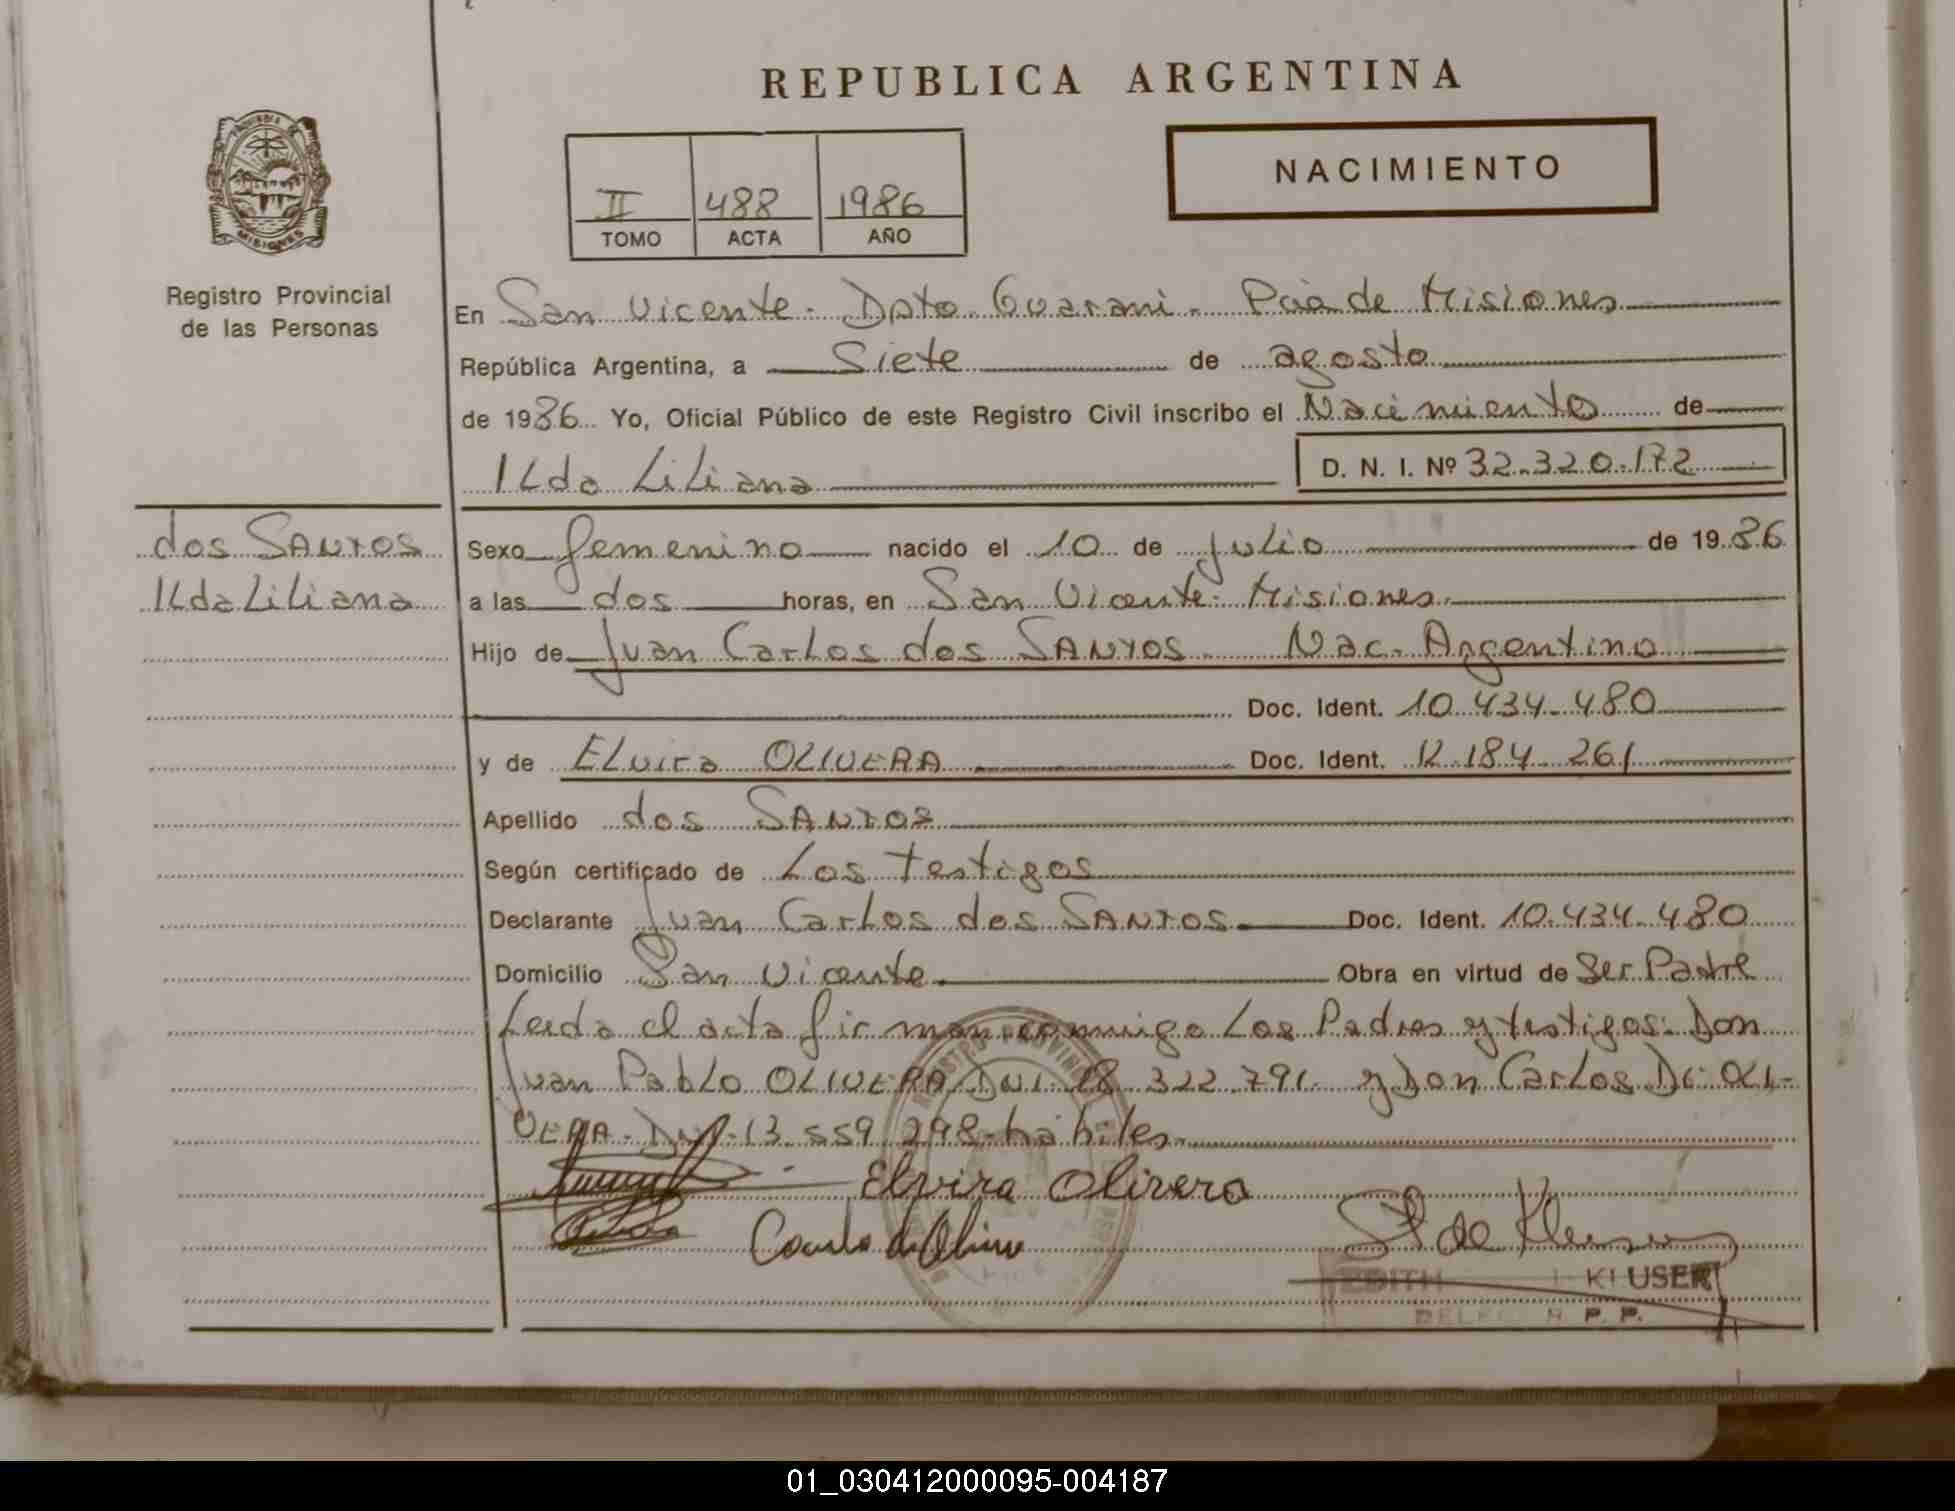 REPUBLICA ARGENTINA
NACIMIENTO
II 488 1986
TOMO ACTA AÑO
PROVINCIA DE
MISIONES
Registro Provincial
de las Personas
En San Vicente. Dpto Guarani. Pcia de Misiones
República Argentina, a siete de agosto
de 1986 Yo, Oficial Público de este Registro Civil inscribo el Nacimiento de
Ilda Liliana D. N. I. Nº 32.320.172
dos SANTOS
Ilda Liliana
Sexo femenino nacido el 10 de julio de 1986
a las dos horas, en San Vicente. Misiones.
Hijo de Juan Carlos dos SANTOS. Nac. Argentino
Doc. Ident. 10.434.480
y de Elvira OLIVERA Doc. Ident. 12.184.261
Apellido dos SANTOS
Según certificado de Los Testigos
Declarante Juan Carlos dos SANTOS Doc. Ident. 10.434.480
Domicilio San Vicente Obra en virtud de Ser Padre
Leida el acta firman conmigo Los Padres y testigos: Don
Juan Pablo OLIVERA, DNI. 18.322.791. y Don Carlos De OLI-
VERA. DNI. 13.559.298 habiles.
Elvira Olivera
Carlo de Olivera
EDITH KLUSER
DELEG. R. P. P.
01_030412000095-004187